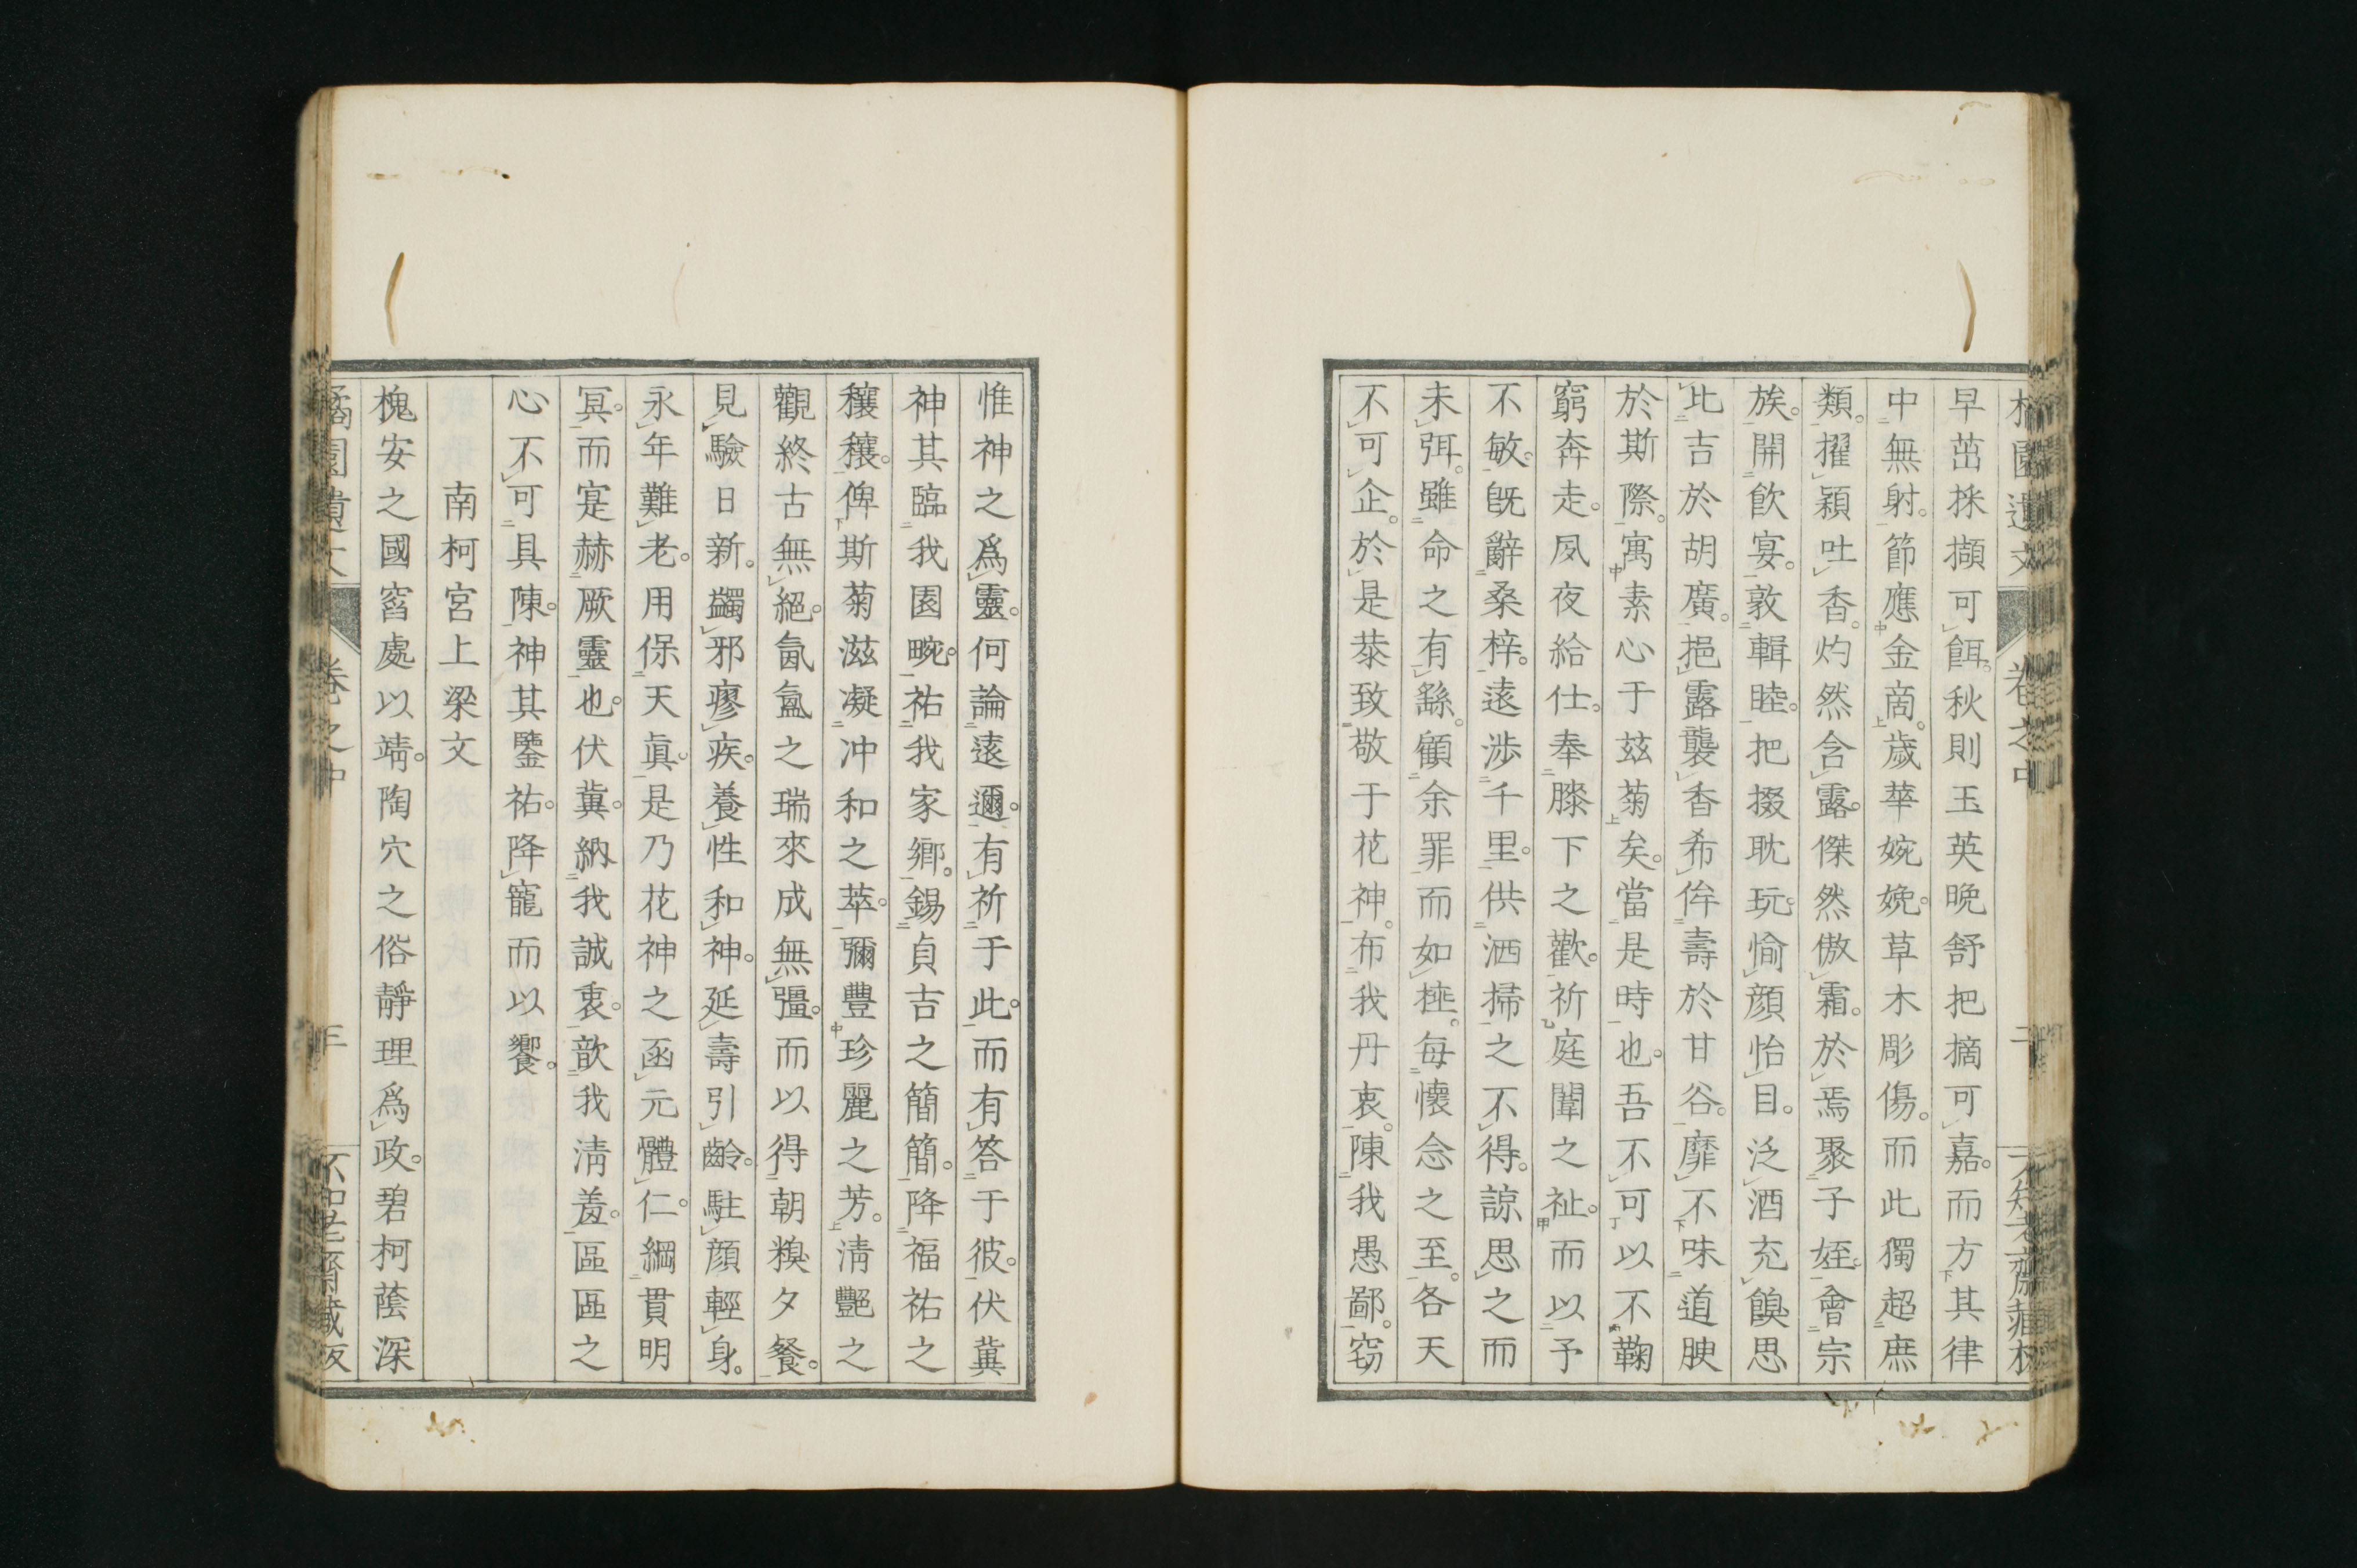 橘園遺文 卷之中 二 不知老齋藏板
早茁採擷可餌。秋則玉英晩舒把摘可嘉。而方其律
中無射。節應金商。歲華婉娩。草木彫傷。而此獨超庶
類。擢穎吐香。灼然含露。傑然傲霜。於焉聚子姪。會宗
族。開飮宴。敦輯睦。把掇耽玩。愉顔怡目。泛酒充餽思
比吉於胡廣。挹露襲香希侔壽於甘谷。靡不味道腴
於斯際。寓素心于茲菊矣。當是時也。吾不可以不鞠
窮奔走。夙夜給仕。奉膝下之歡。祈庭闈之祉。而以予
不敏。旣辭桑梓。遠渉千里。供洒掃之不得。諒思之而
未弭。雖命之有繇。顧余罪而如㮂。每懷念之至。各天
不可企。於是恭致敬于花神。布我丹衷。陳我愚鄙。窃
惟神之爲靈。何論遠邇。有祈于此。而有答于彼。伏冀
神其臨我園畹。祐我家鄕。錫貞吉之簡簡。降福祐之
穰穰。俾斯菊滋凝冲和之萃。彌豐珍麗之芳。淸艷之
觀終古無絕。氤氳之瑞來成無彊。而以得朝糗夕餐。
見驗日新。蠲邪瘳疾。養性和神。延壽引齡。駐顔輕身。
永年難老。用保天眞。是乃花神之函元體仁。綱貫明
冥。而寔赫厥靈也。伏冀。納我誠衷。歆我淸羞。區區之
心不可具陳。神其鑒祐。降寵而以饗。
南柯宮上梁文
槐安之國窅處以靖。陶穴之俗靜理爲政。碧柯蔭深
橘園遺文 卷之中 三 不知老齋藏板